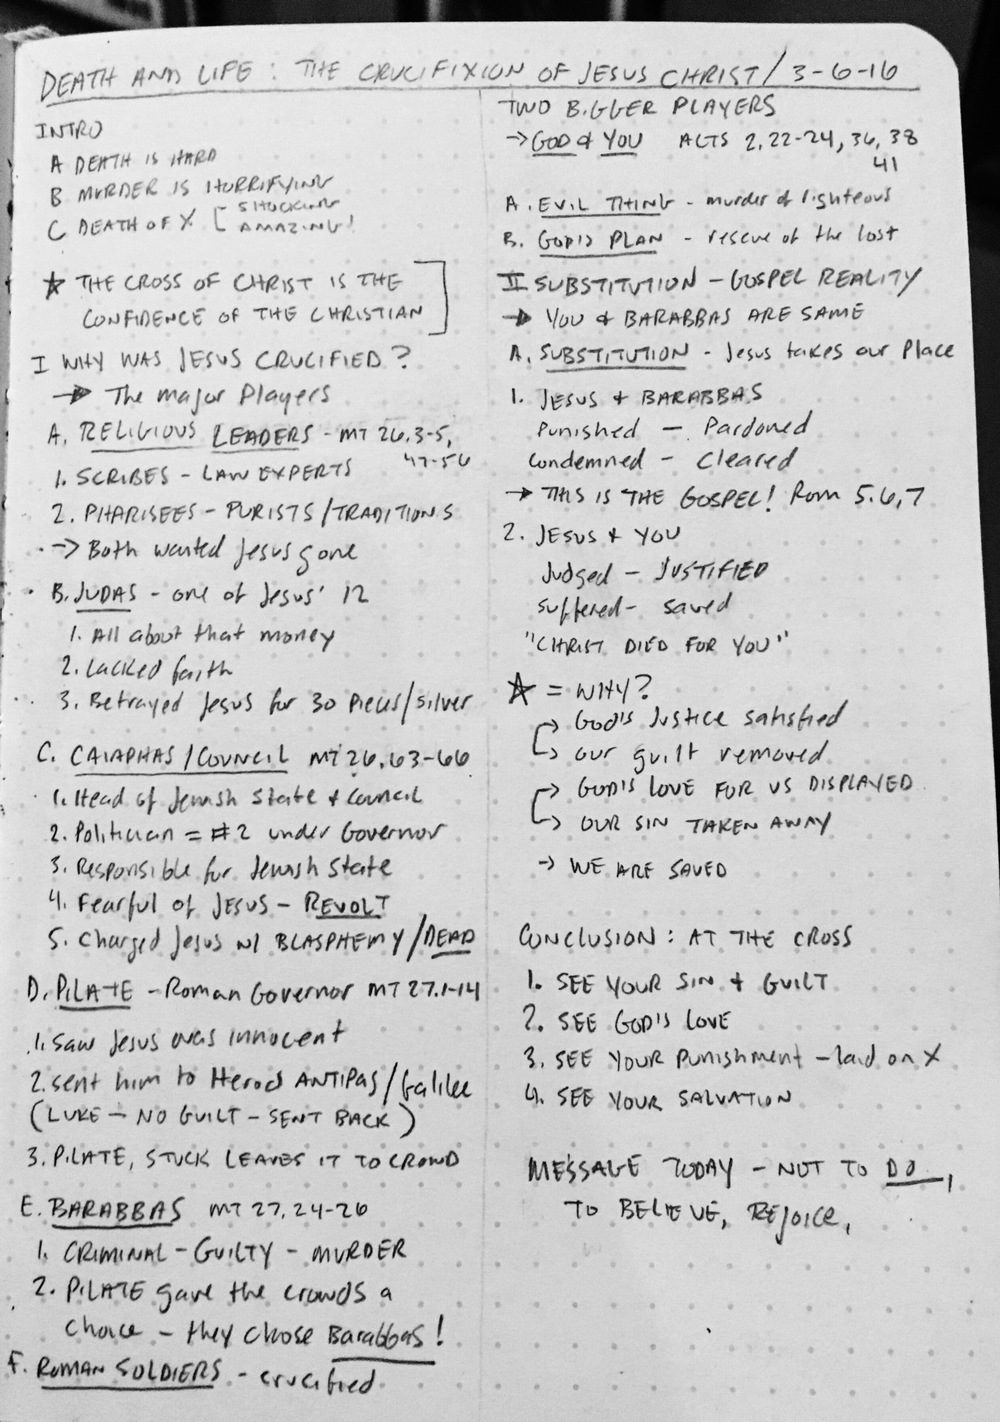 DEATH AND LIFE: THE CRUCIFIXION OF JESUS CHRIST / 3-6-16
INTRO
A DEATH IS HARD
B MURDER IS HORRIFYING
C DEATH OF X [ SHOCKING
AMAZING!
★ THE CROSS OF CHRIST IS THE
CONFIDENCE OF THE CHRISTIAN
I WHY WAS JESUS CRUCIFIED?
→ The major Players
A. RELIGIOUS LEADERS - MT 26.3-5,
47-56
1. SCRIBES - LAW EXPERTS
2. PHARISEES - PURISTS/TRADITIONS
→ Both wanted Jesus gone
B. JUDAS - one of Jesus' 12
1. All about that money
2. Lacked faith
3. Betrayed Jesus for 30 pieces/silver
C. CAIAPHAS/COUNCIL MT 26.63-66
1. Head of Jewish State & Council
2. Politician = #2 under Governor
3. Responsible for Jewish State
4. Fearful of JESUS - REVOLT
5. Charged Jesus w/ BLASPHEMY/DEAD
D. PILATE - Roman Governor MT 27.1-14
1. Saw Jesus was innocent
2. sent him to Herod ANTIPAS/Galilee
(LUKE - NO GUILT - SENT BACK)
3. PILATE, STUCK LEAVES IT TO CROWD
E. BARABBAS MT 27.24-26
1. CRIMINAL - GUILTY - MURDER
2. PILATE gave the crowds a
choice - they chose Barabbas!
F. ROMAN SOLDIERS - crucified
TWO BIGGER PLAYERS
→ GOD & YOU ACTS 2.22-24, 36, 38
41
A. EVIL THING - murder of righteous
B. GOD'S PLAN - rescue of the lost
II SUBSTITUTION - GOSPEL REALITY
→ YOU & BARABBAS ARE SAME
A. SUBSTITUTION - Jesus takes our Place
1. JESUS & BARABBAS
Punished - Pardoned
Condemned - Cleared
→ THIS IS THE GOSPEL! Rom 5.6,7
2. JESUS & YOU
Judged - JUSTIFIED
Suffered - saved
"CHRIST DIED FOR YOU"
★ = WHY?
→ GOD'S Justice satisfied
→ our guilt removed
→ GOD'S LOVE FOR US DISPLAYED
→ OUR SIN TAKEN AWAY
→ WE ARE SAVED
CONCLUSION: AT THE CROSS
1. SEE YOUR SIN & GUILT
2. SEE GOD'S LOVE
3. SEE YOUR Punishment - laid on X
4. SEE YOUR SALVATION
MESSAGE TODAY - NOT TO DO,
TO BELIEVE, REJOICE,